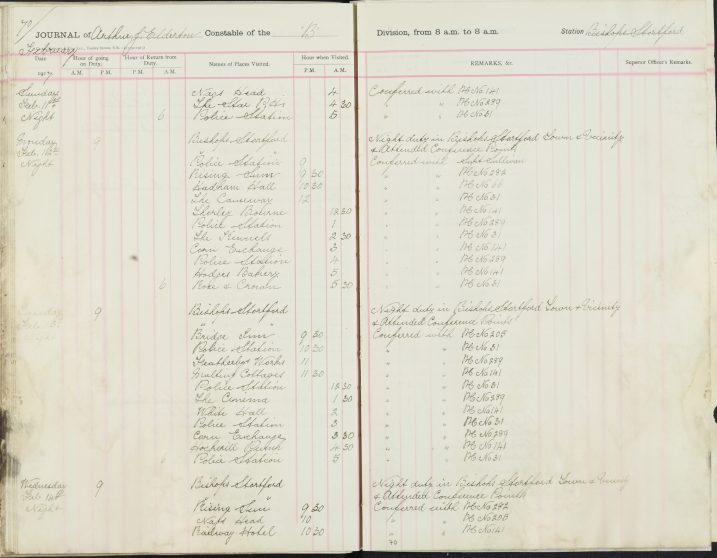 70
JOURNAL of Arthur J. Elderton Constable of the "B" Division, from 8 a.m. to 8 a.m. Station Bishops Stortford
February
Date Hour of going on Duty. Hour of Return from Duty. Names of Places Visited. Hour when Visited. REMARKS, &c. Superior Officer's Remarks.
1917 A.M. P.M. A.M. P.M. P.M. A.M.
Sunday Nags Head 4 Conferred with PC No 141
Feb. 11th The Star 4 30 " " PC No 289
Night 6 Police Station 5 " " PC No 31
Monday 9 Bishops Stortford Night duty in Bishops Stortford Town & Vicinity
Feb. 12th & Attended Conference Points
Night "Police Station" 9 Conferred with Supt Sullivan
Rising Sun 9 30 " " PC No 282
Hadham Hall 10 30 " " PC No 66
The Causeway 12 " " PC No 31
Thorley Bourne 12 30 " " PC No 141
Police Station 1 " " PC No 289
The Kennels 2 30 " " PC No 31
Corn Exchange 3 " " PC No 141
Police Station 4 " " PC No 289
Hodges Bakery 5 " " PC No 141
6 Rose & Crown 5 30 " " PC No 31
9 Bishops Stortford Night duty in Bishops Stortford Town & Vicinity
& Attended Conference Points
Bridge Inn 9 30 Conferred with PC No 205
Police Station 10 30 " " PC No 31
Featherbys Works 11 " " PC No 289
Malting Cottages 11 30 " " PC No 141
Police Station 12 30 " " PC No 31
The Cinema 1 30 " " PC No 289
White Hall 2 " " PC No 141
Police Station 3 " " PC No 31
Corn Exchange 3 30 " " PC No 289
Hockerill 4 30 " " PC No 141
Police Station 5 " " PC No 31
Wednesday 9 Bishops Stortford Night duty in Bishops Stortford Town & Vicinity
Feb. 14th & Attended Conference Points
Night "Rising Sun" 9 30 Conferred with PC No 282
Nags Head 10 " " PC No 205
Railway Hotel 10 30 " " PC No 141
70